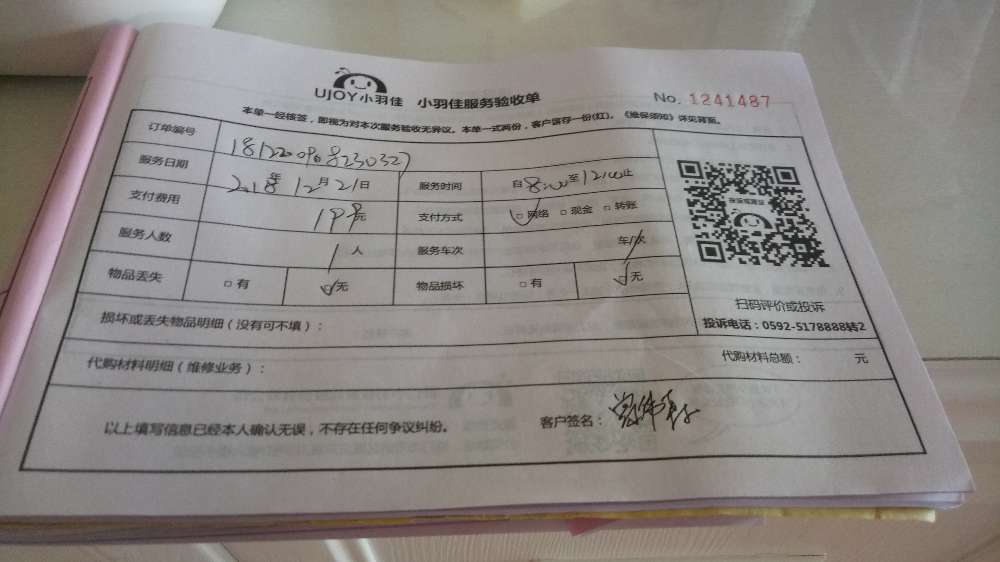 UJOY小羽佳 小羽佳服务验收单
No. 1241487
本单一经核签，即视为对本次服务验收无异议。本单一式两份，客户留存一份(红)。《维保须知》详见背面。
订单编号
服务日期 2018年12月21日 服务时间 自8:00至12:00止
支付费用 198元 支付方式 □网络 □现金 □转账
服务人数 1人 服务车次 车/次
物品丢失 □有 ☑无 物品损坏 □有 ☑无
扫码评价或投诉
投诉电话：0592-5178888转2
损坏或丢失物品明细（没有可不填）：
代购材料明细（维修业务）： 代购材料总额： 元
以上填写信息已经本人确认无误，不存在任何争议纠纷。 客户签名：